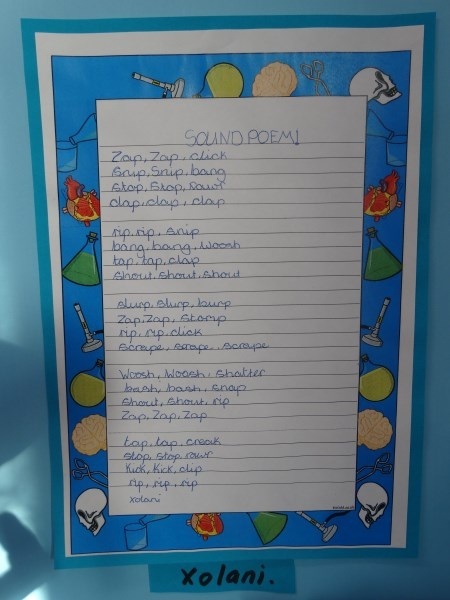 SOUND POEM!
Zap, Zap, click
Snip, Snip, bang
Stop, Stop, Rawr
clap, clap, clap
rip, rip, snip
bang, bang, Woosh
tap, tap, clap
Shout, Shout, Shout
slurp, slurp, burp
Zap, Zap, Stomp
rip, rip, click
Scrape, scrape, scrape
Woosh, Woosh, Shatter
bash, bash, snap
Shout, Shout, rip
Zap, Zap, Zap
tap, tap, creak
stop, stop rawr
Kick, Kick, clip
rip, rip, rip
xolani
xolani.